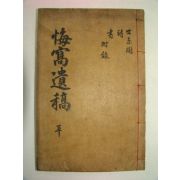 世系圖
詩
書 附錄
悔窩遺稿 單